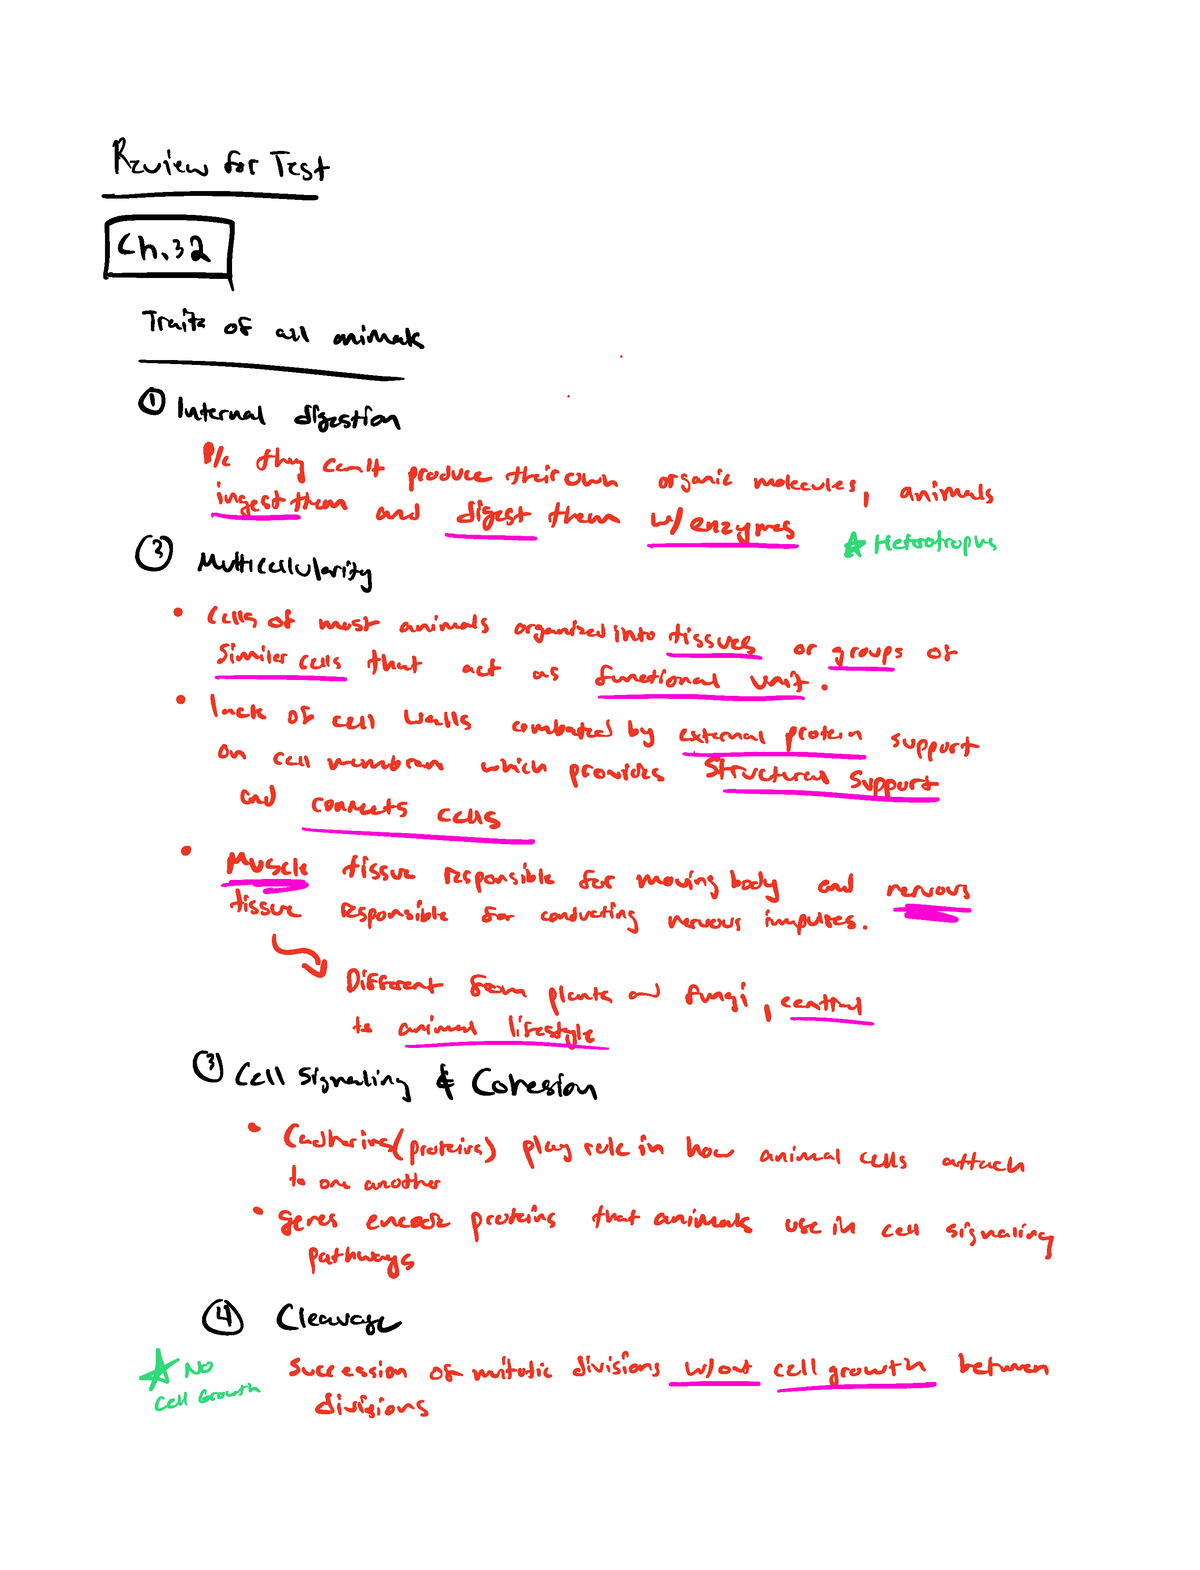 Review for Test
Ch.32
Traits of all animals
① Internal digestion
B/c they can't produce their own organic molecules, animals
ingest them and digest them w/ enzymes
☆ Heterotrophs
② Multicellularity
• Cells of most animals organized into tissues or groups of
similar cells that act as functional unit.
• lack of cell walls combated by external protein support
on cell membran which provides structural support
and connects cells
• Muscle tissue responsible for moving body and nervous
tissue responsible for conducting nervous impulses.
Different from plants and fungi, central
to animal lifestyle
③ Cell Signaling & Cohesion
• Cadherins (proteins) play role in how animal cells attach
to one another
• genes encode proteins that animals use in cell signaling
pathways
④ Cleavage
☆ No
Cell Growth
Succession of mitotic divisions w/out cell growth between
divisions